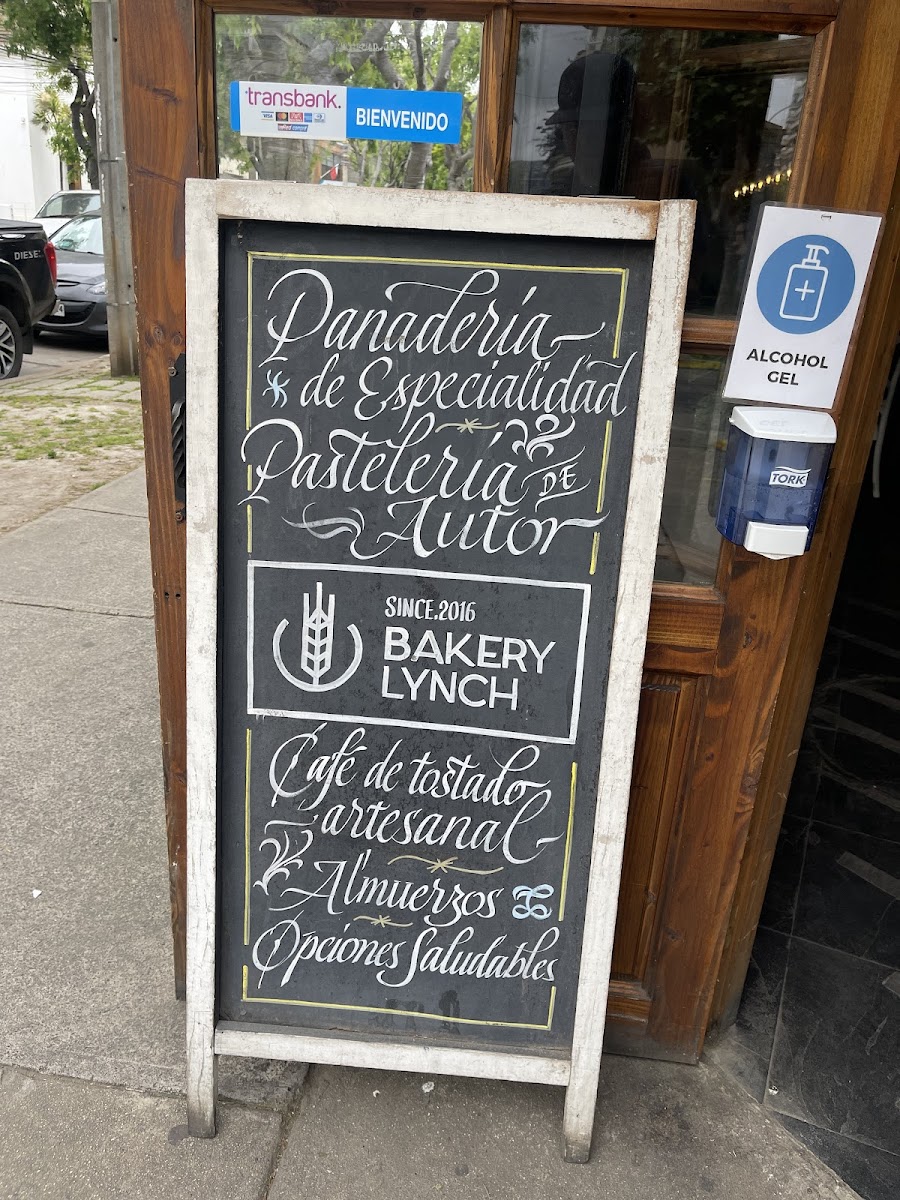 transbank.
BIENVENIDO
VISA
DIESEL
Panadería
de Especialidad
Pastelería DE
Autor
SINCE.2016
BAKERY
LYNCH
Café de tostado
artesanal
Almuerzos
Opciones Saludables
ALCOHOL
GEL
TORK